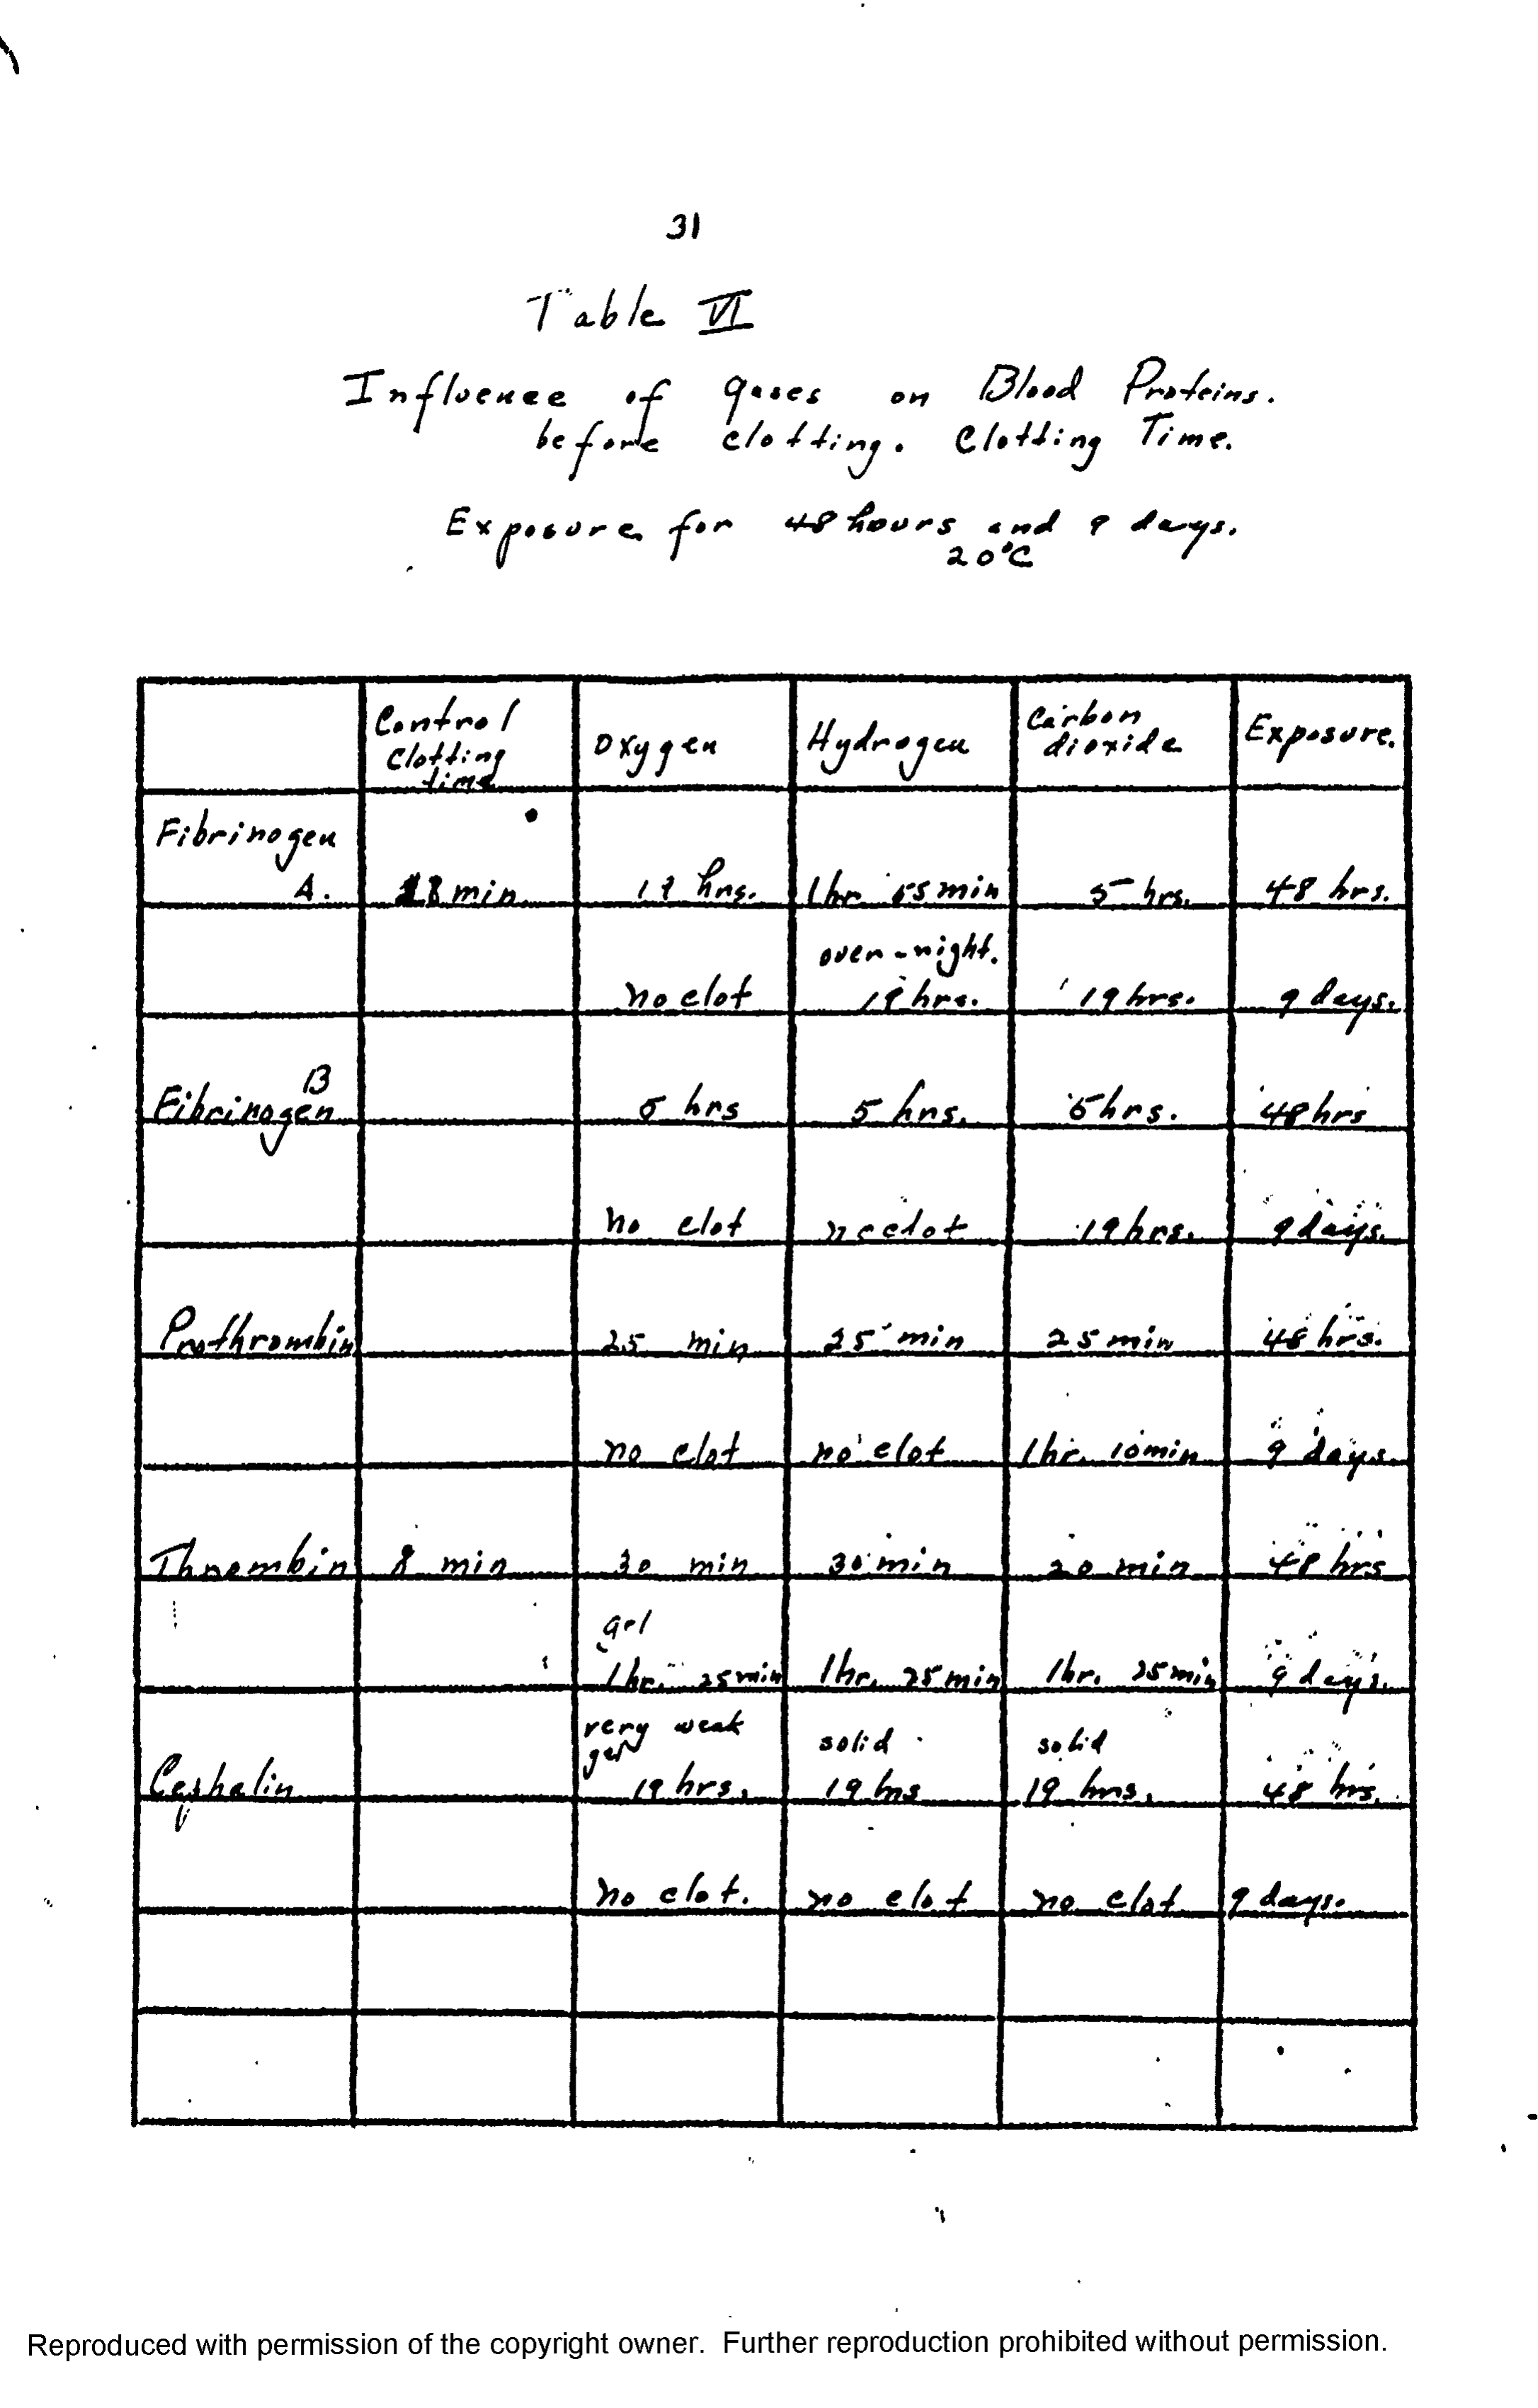 31
Table VI
Influence of gases on Blood Proteins.
before clotting. Clotting Time.
Exposure for 48 hours and 9 days.
20°C
Control Clotting time Oxygen Hydrogen Carbon dioxide Exposure.
Fibrinogen A. 18 min 19 hrs. 1hr 55min 5 hrs. 48 hrs.
no clot over-night. 19 hrs. 19 hrs. 9 days.
Fibrinogen B 5 hrs 5 hrs. 5 hrs. 48 hrs
no clot no clot 19 hrs. 9 days.
Prothrombin 25 min 25 min 25 min 48 hrs.
no clot no clot 1hr. 10min 9 days.
Thrombin 8 min 30 min 30 min 20 min 48 hrs
gel 1hr. 25min 1hr. 25min 1hr. 25min 9 days.
Cephalin very weak gel 19 hrs. solid 19 hrs solid 19 hrs. 48 hrs.
no clot. no clot no clot 9 days.
Reproduced with permission of the copyright owner. Further reproduction prohibited without permission.